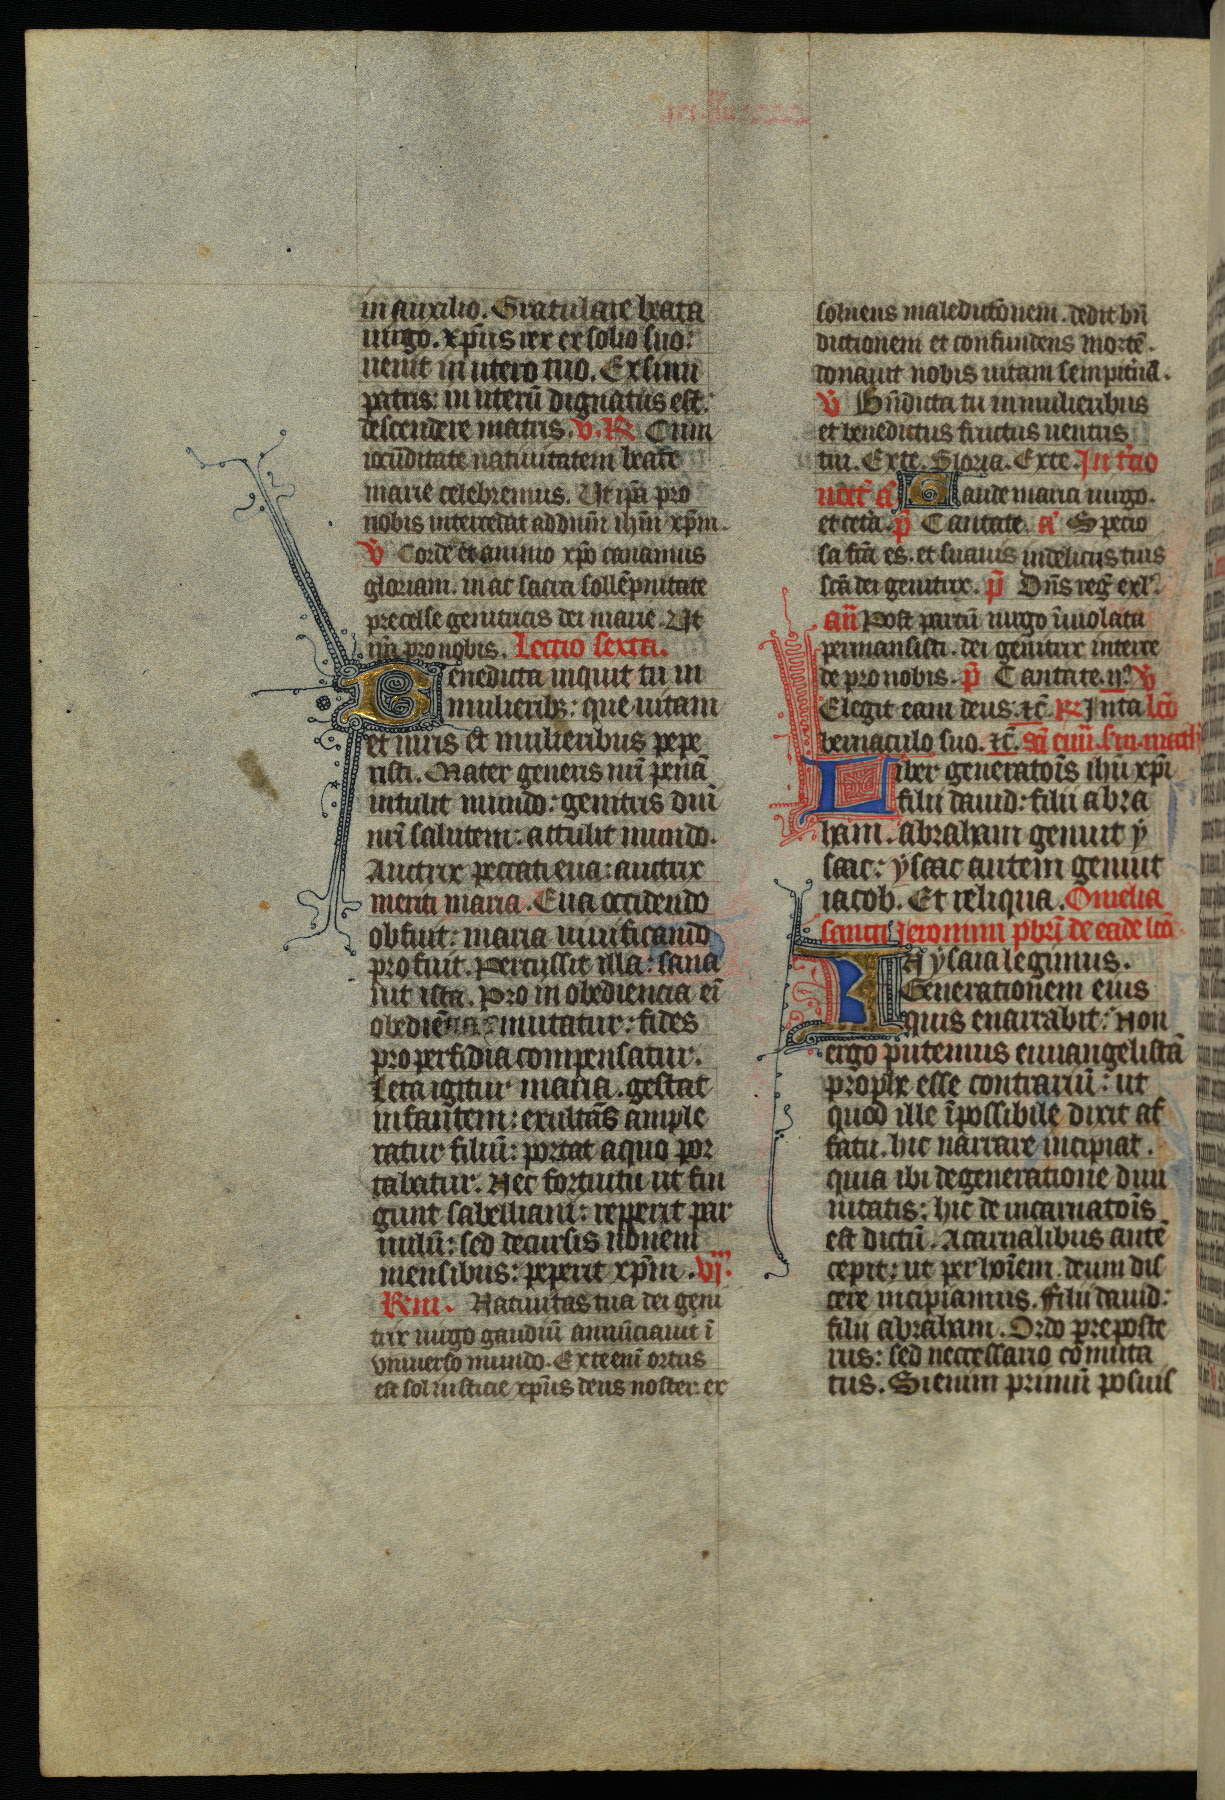 in auxilio. Gratulare beata
uirgo. xp̄us rex ex solio suo:
uenit in utero tuo. Ex sinu
patris: in uterū dignatus est:
descendere matris. v. R Cum
iocūditate natiuitatem beate
marie celebremus. Ut ip̄a pro
nobis intercedat ad dn̄m ihm̄ xp̄m.
v̄ Corde et animo xp̄o canamus
gloriam. in ac sacra sollēpnitate
precelse genitricis dei marie. Ut
ip̄a pro nobis. Lectio sexta.
Benedicta inquit tu in
mulieribꝫ: que uitam
et uiris et mulieribus pepe
risti. Mater generis nr̄i penā
intulit mundo: genitrix dn̄i
nr̄i salutem: attulit mundo.
Auctrix peccati eua: auctrix
meriti maria. Eua occidendo
obfuit: maria uiuificando
profuit. Percussit illa: sana
uit ista. Pro inobediencia ei
obediēcia cōmutatur: fides
pro perfidia compensatur.
Leta igitur maria. gestat
infantem: exultās ample
xatur filiū: portat a quo por
tabatur. Nec fortuitu ut fin
gunt sabelliani: repperit par
uulū: sed decursis nouem
mensibus: peperit xp̄m. vj.
Rm. Natiuitas tua dei geni
trix uirgo gaudiū annūciauit ī
vniuerso mundo. Ex te eni ortus
est sol iusticie xp̄us deus noster. ex
soluens maledictōnem. dedit bn̄
dictionem et confundens mortē.
donauit nobis uitam sempit̄nā.
v̄ Bn̄dicta tu in mulieribus
et benedictus fructus uentris
tui. Ex te. Gloria. Ex te. In t̄cio
noct̄ a Gaude maria uirgo.
et cetā. p̄ Cantate. a Specio
sa fc̄a es. et suauis in delicijs tuis
sc̄a dei genitrix. p̄ Dn̄s reḡ exl̄.
an̄ Post partū uirgo īuiolata
permansisti. dei genitrix interce
de pro nobis. p̄ Cantate. ij. v̄
Elegit eam deus. ⁊c̄. R In ta lcō
bernaculo suo. ⁊c̄.
Liber generatōis ihū xp̄i
filii dauid: filii abra
ham. abraham genuit y
saac: ysaac autem genuit
iacob. Et reliqua. Omelia
sancti Jeronimi pb̄ri de eadē lcō.
In ysaia legimus.
Generationem eius
quis enarrabit: Non
ergo putemus euuangelistā
prophe esse contrariū: ut
quod ille īpossibile dixit af
fatu. hic narrare incipiat.
quia ibi de generatione diui
nitatis: hic de incarnatōis
est dictū. A carnalibus autē
cepit: ut per hoīem deum dis
cere incipiamus. filii dauid:
filii abraham. Ordo preposte
rus: sed neccessario cōmuta
tus. Si enim primū posuis